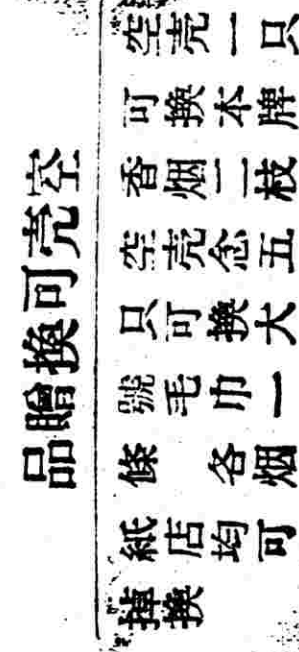 空壳可換贈品
空壳一只
可換本牌
香烟二枝
空壳念五
只可換大
號毛巾一
條 各烟
紙店均可
掉換